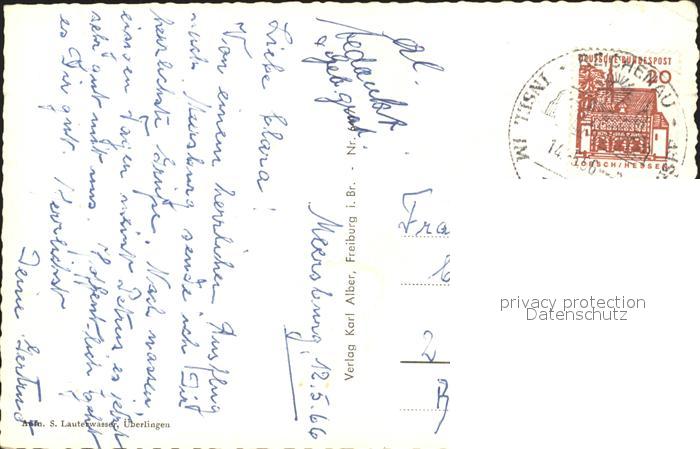 Meersburg 12.5.66
Liebe Klara!
Von einem herrlichen Ausflug
nach Meersburg sende ich Dir
herzlichste Grüße. Nach nassen
einigen Tagen meint Petrus es jetzt
sehr gut mit uns. Hoffentlich geht
es Dir gut. Herzlichst
Deine Gertrud
Aufn. S. Lauterwasser, Überlingen
Verlag Karl Alber, Freiburg i. Br. - Nr.
DEUTSCHE BUNDESPOST
20
LORSCH/HESSEN
INSEL REICHENAU
IM
Fra
2
privacy protection
Datenschutz